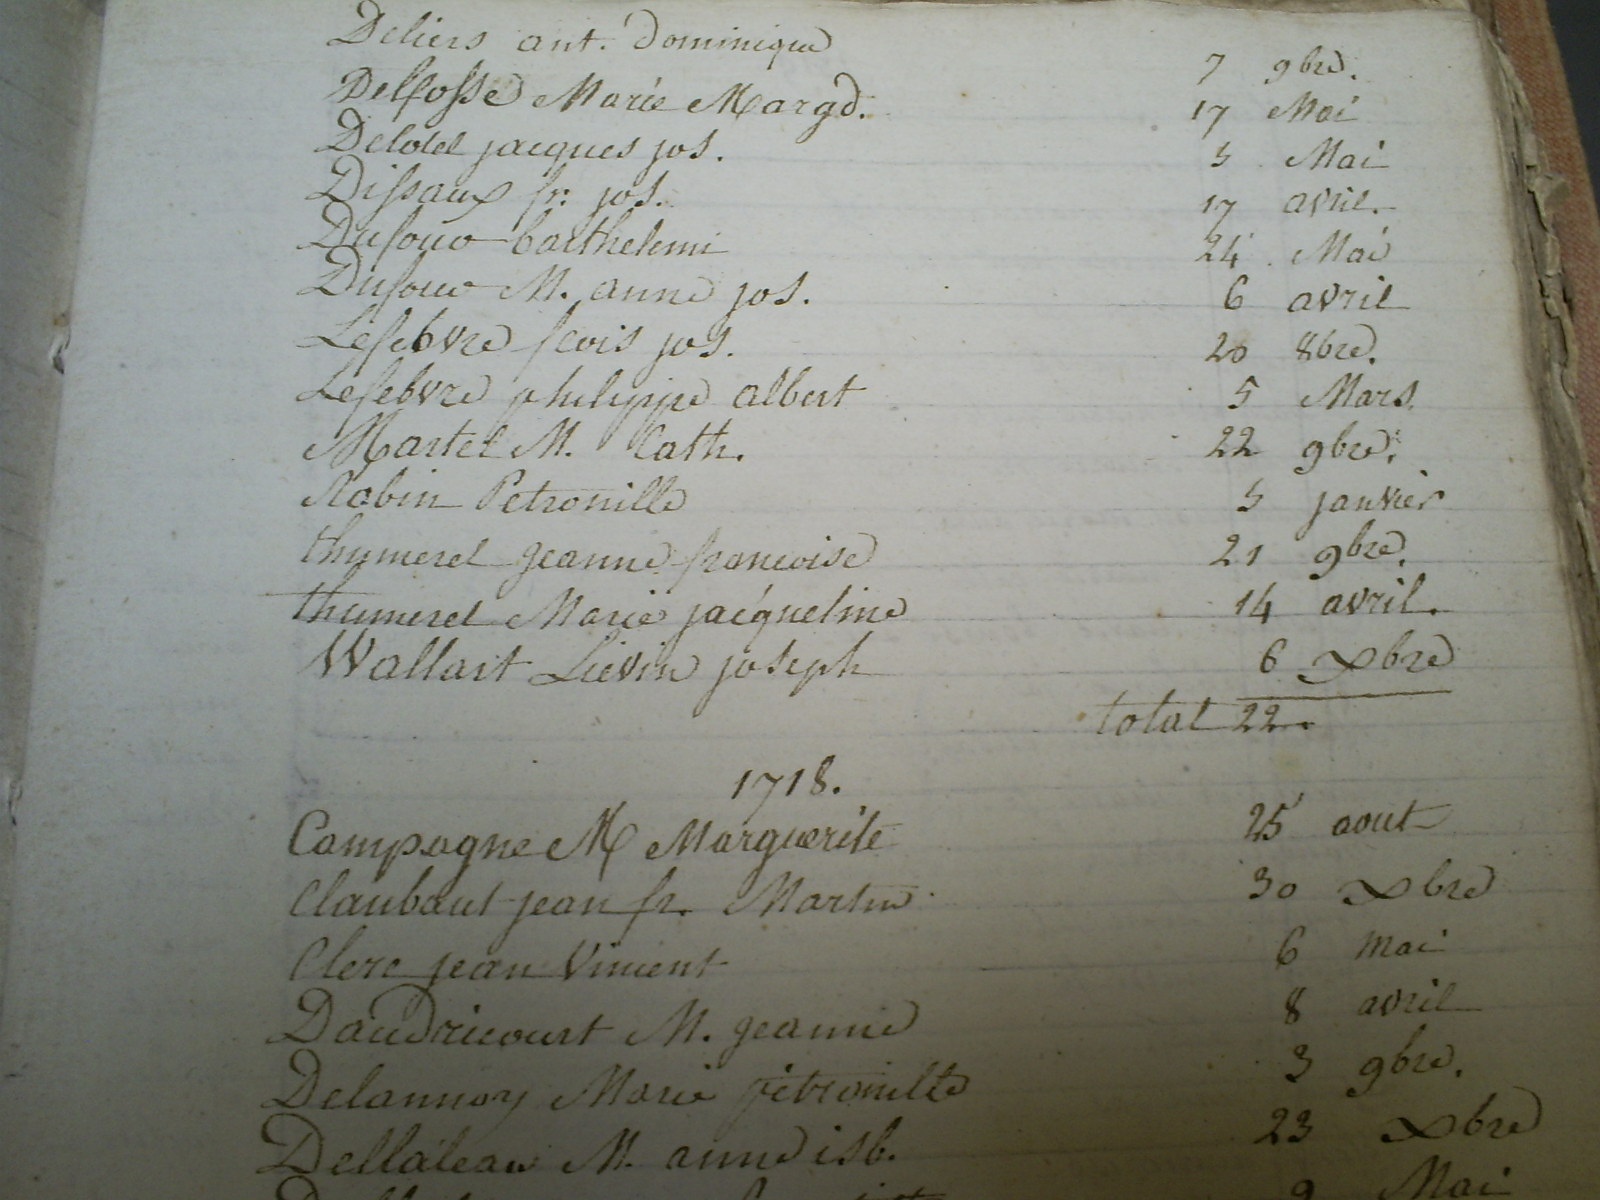 Deliers ant. Dominique 7 9bre.
Delfosse Marie Margd. 17 Mai
Delotel jacques jos. 3 Mai
Dissaux fr. jos. 17 avril.
Dufour barthelemi 24 Mai
Dufour M. anne jos. 6 avril
Lefebvre fcois jos. 20 8bre.
Lefebvre philippe albert 5 Mars.
Martel M. Cath. 22 9bre.
Robin Petronille 3 janvier
thumerel jeanne francoise 21 9bre.
thumerel Marie jacqueline 14 avril.
Wallart Lievin joseph 6 xbre
total 22.
1718.
Campagne M Marguerite 25 aout
Claubaut jean fr. Martin 30 xbre
Clerc jean Vincent 6 mai
Daudricourt M. jeanne 8 avril
Delannoy Marie petronille 3 9bre.
Dellaleau M. anne isb. 23 xbre
9 Mai